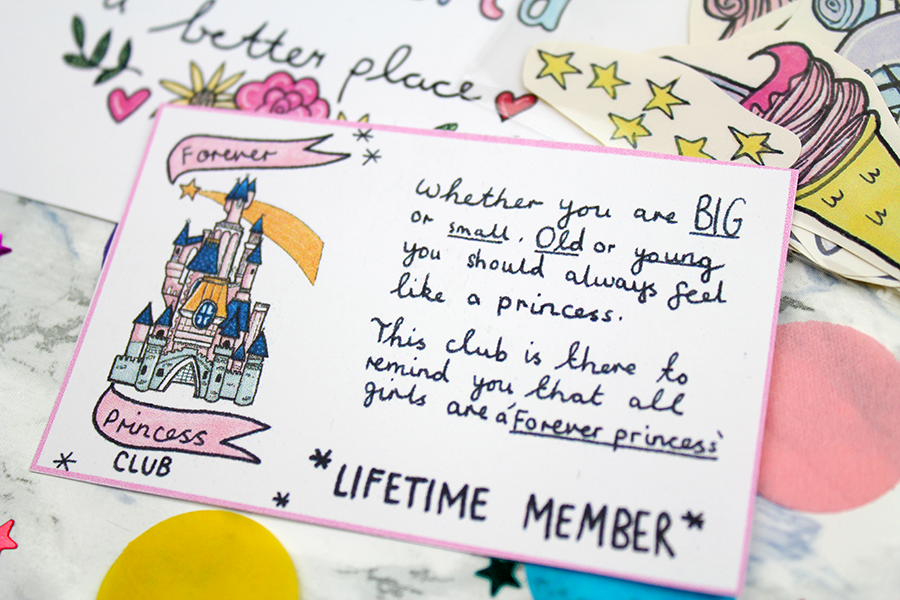 a better place
Forever
Princess
CLUB
Whether you are BIG
or small. Old or young
you should always feel
like a princess.
This club is there to
remind you that all
girls are a 'Forever princess'
*LIFETIME MEMBER*